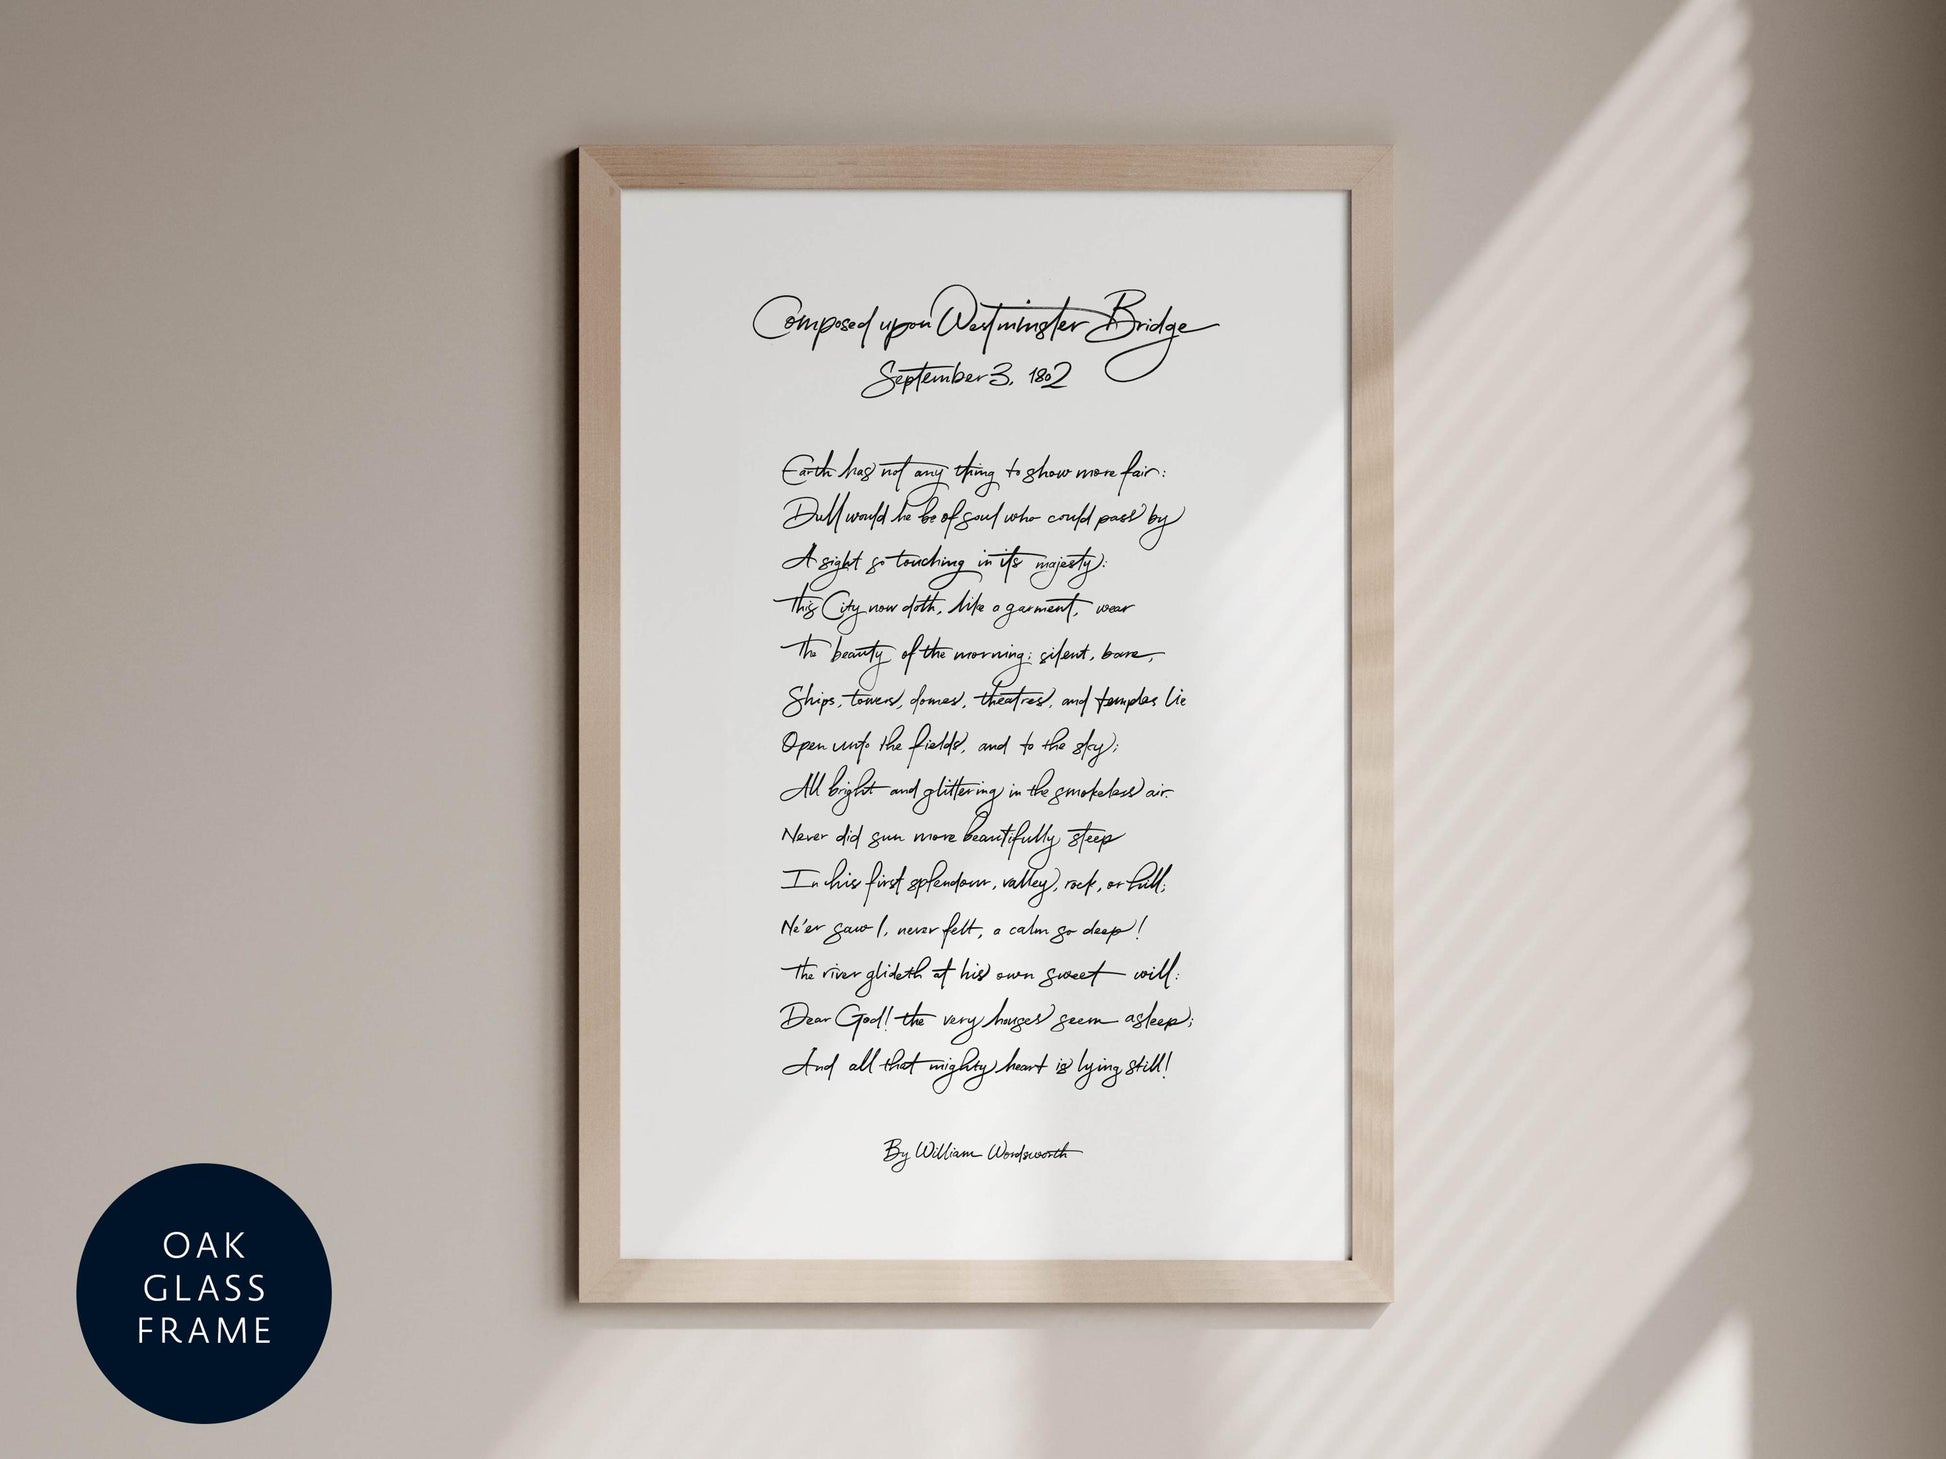 Composed upon Westminster Bridge
September 3, 1802
Earth has not any thing to show more fair:
Dull would he be of soul who could pass by
A sight so touching in its majesty:
This City now doth, like a garment, wear
The beauty of the morning; silent, bare,
Ships, towers, domes, theatres, and temples lie
Open unto the fields, and to the sky;
All bright and glittering in the smokeless air.
Never did sun more beautifully steep
In his first splendour, valley, rock, or hill;
Ne'er saw I, never felt, a calm so deep!
The river glideth at his own sweet will:
Dear God! the very houses seem asleep;
And all that mighty heart is lying still!
By William Wordsworth
OAK
GLASS
FRAME